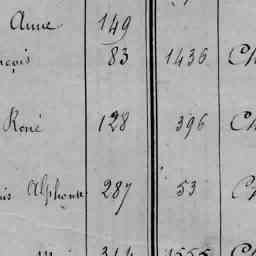 Anne 149
nçois 83 1436 Ch
René 128 396 Ch
uis Alphonse 287 53 Ch
314 1555 Ch